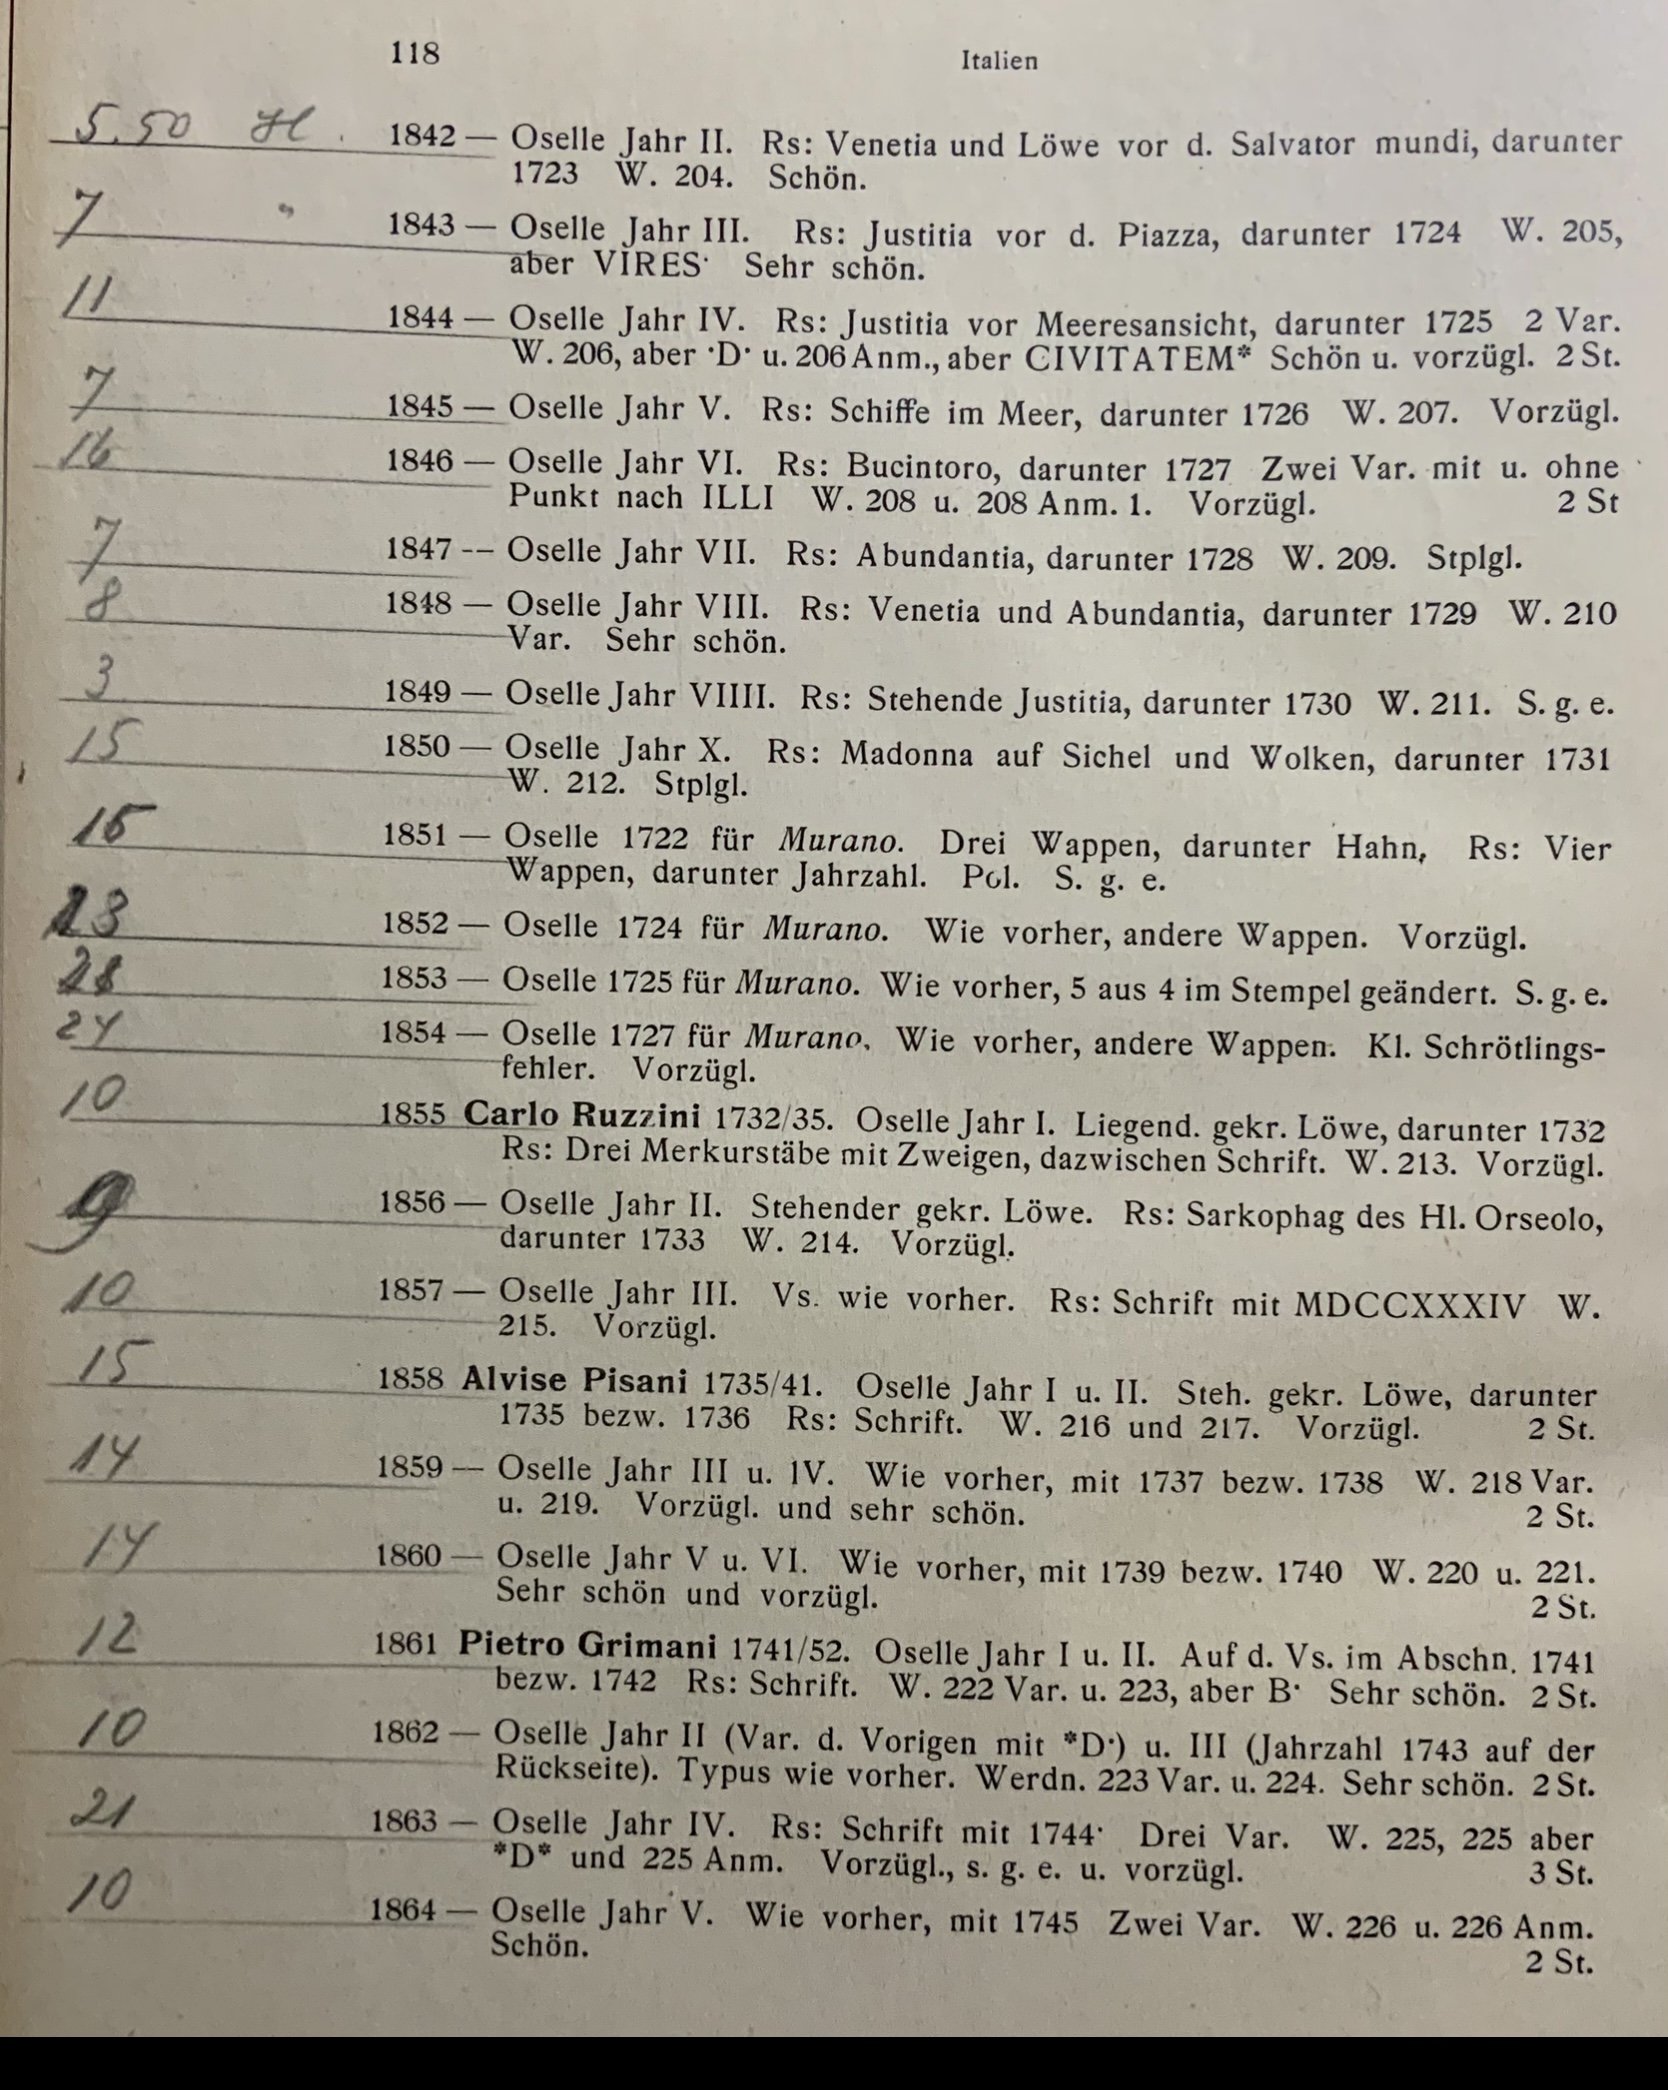 118 Italien
5.50 1842 — Oselle Jahr II. Rs: Venetia und Löwe vor d. Salvator mundi, darunter
1723 W. 204. Schön.
7 " 1843 — Oselle Jahr III. Rs: Justitia vor d. Piazza, darunter 1724 W. 205,
aber VIRES· Sehr schön.
11 1844 — Oselle Jahr IV. Rs: Justitia vor Meeresansicht, darunter 1725 2 Var.
W. 206, aber ·D· u. 206 Anm., aber CIVITATEM* Schön u. vorzügl. 2 St.
7 1845 — Oselle Jahr V. Rs: Schiffe im Meer, darunter 1726 W. 207. Vorzügl.
16 1846 — Oselle Jahr VI. Rs: Bucintoro, darunter 1727 Zwei Var. mit u. ohne
Punkt nach ILLI W. 208 u. 208 Anm. 1. Vorzügl. 2 St
7 1847 -– Oselle Jahr VII. Rs: Abundantia, darunter 1728 W. 209. Stplgl.
8 1848 — Oselle Jahr VIII. Rs: Venetia und Abundantia, darunter 1729 W. 210
Var. Sehr schön.
3 1849 — Oselle Jahr VIIII. Rs: Stehende Justitia, darunter 1730 W. 211. S. g. e.
15 1850 — Oselle Jahr X. Rs: Madonna auf Sichel und Wolken, darunter 1731
W. 212. Stplgl.
1851 — Oselle 1722 für Murano. Drei Wappen, darunter Hahn, Rs: Vier
Wappen, darunter Jahrzahl. Pol. S. g. e.
1852 — Oselle 1724 für Murano. Wie vorher, andere Wappen. Vorzügl.
1853 — Oselle 1725 für Murano. Wie vorher, 5 aus 4 im Stempel geändert. S. g. e.
24 1854 — Oselle 1727 für Murano. Wie vorher, andere Wappen. Kl. Schrötlings-
fehler. Vorzügl.
10 1855 Carlo Ruzzini 1732/35. Oselle Jahr I. Liegend. gekr. Löwe, darunter 1732
Rs: Drei Merkurstäbe mit Zweigen, dazwischen Schrift. W. 213. Vorzügl.
9 1856 — Oselle Jahr II. Stehender gekr. Löwe. Rs: Sarkophag des Hl. Orseolo,
darunter 1733 W. 214. Vorzügl.
10 1857 — Oselle Jahr III. Vs. wie vorher. Rs: Schrift mit MDCCXXXIV W.
215. Vorzügl.
15 1858 Alvise Pisani 1735/41. Oselle Jahr I u. II. Steh. gekr. Löwe, darunter
1735 bezw. 1736 Rs: Schrift. W. 216 und 217. Vorzügl. 2 St.
14 1859 — Oselle Jahr III u. IV. Wie vorher, mit 1737 bezw. 1738 W. 218 Var.
u. 219. Vorzügl. und sehr schön. 2 St.
14 1860 — Oselle Jahr V u. VI. Wie vorher, mit 1739 bezw. 1740 W. 220 u. 221.
Sehr schön und vorzügl. 2 St.
12 1861 Pietro Grimani 1741/52. Oselle Jahr I u. II. Auf d. Vs. im Abschn. 1741
bezw. 1742 Rs: Schrift. W. 222 Var. u. 223, aber B· Sehr schön. 2 St.
10 1862 — Oselle Jahr II (Var. d. Vorigen mit *D·) u. III (Jahrzahl 1743 auf der
Rückseite). Typus wie vorher. Werdn. 223 Var. u. 224. Sehr schön. 2 St.
21 1863 — Oselle Jahr IV. Rs: Schrift mit 1744· Drei Var. W. 225, 225 aber
*D* und 225 Anm. Vorzügl., s. g. e. u. vorzügl. 3 St.
10 1864 — Oselle Jahr V. Wie vorher, mit 1745 Zwei Var. W. 226 u. 226 Anm.
Schön. 2 St.